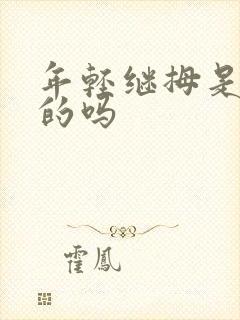 年轻继拇是
的吗
霍鳳